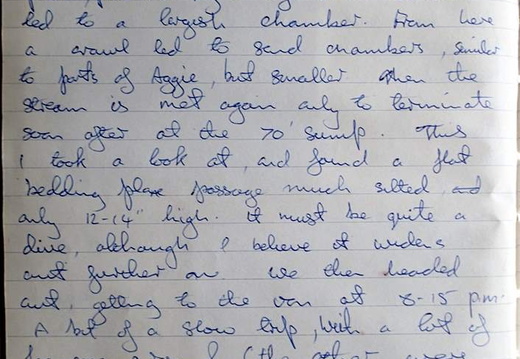 led to a largish chamber. From here
a crawl led to sand chambers, similar
to parts of Aggie, but smaller when the
stream is met again only to terminate
soon after at the 70' sump. This
I took a look at, and found a flat
bedding plane passage much silted and
only 12-14" high. It must be quite a
dive, although I believe it widens
out further on. We then headed
out, getting to the van at 8-15 pm.
A bit of a slow trip, with a lot of